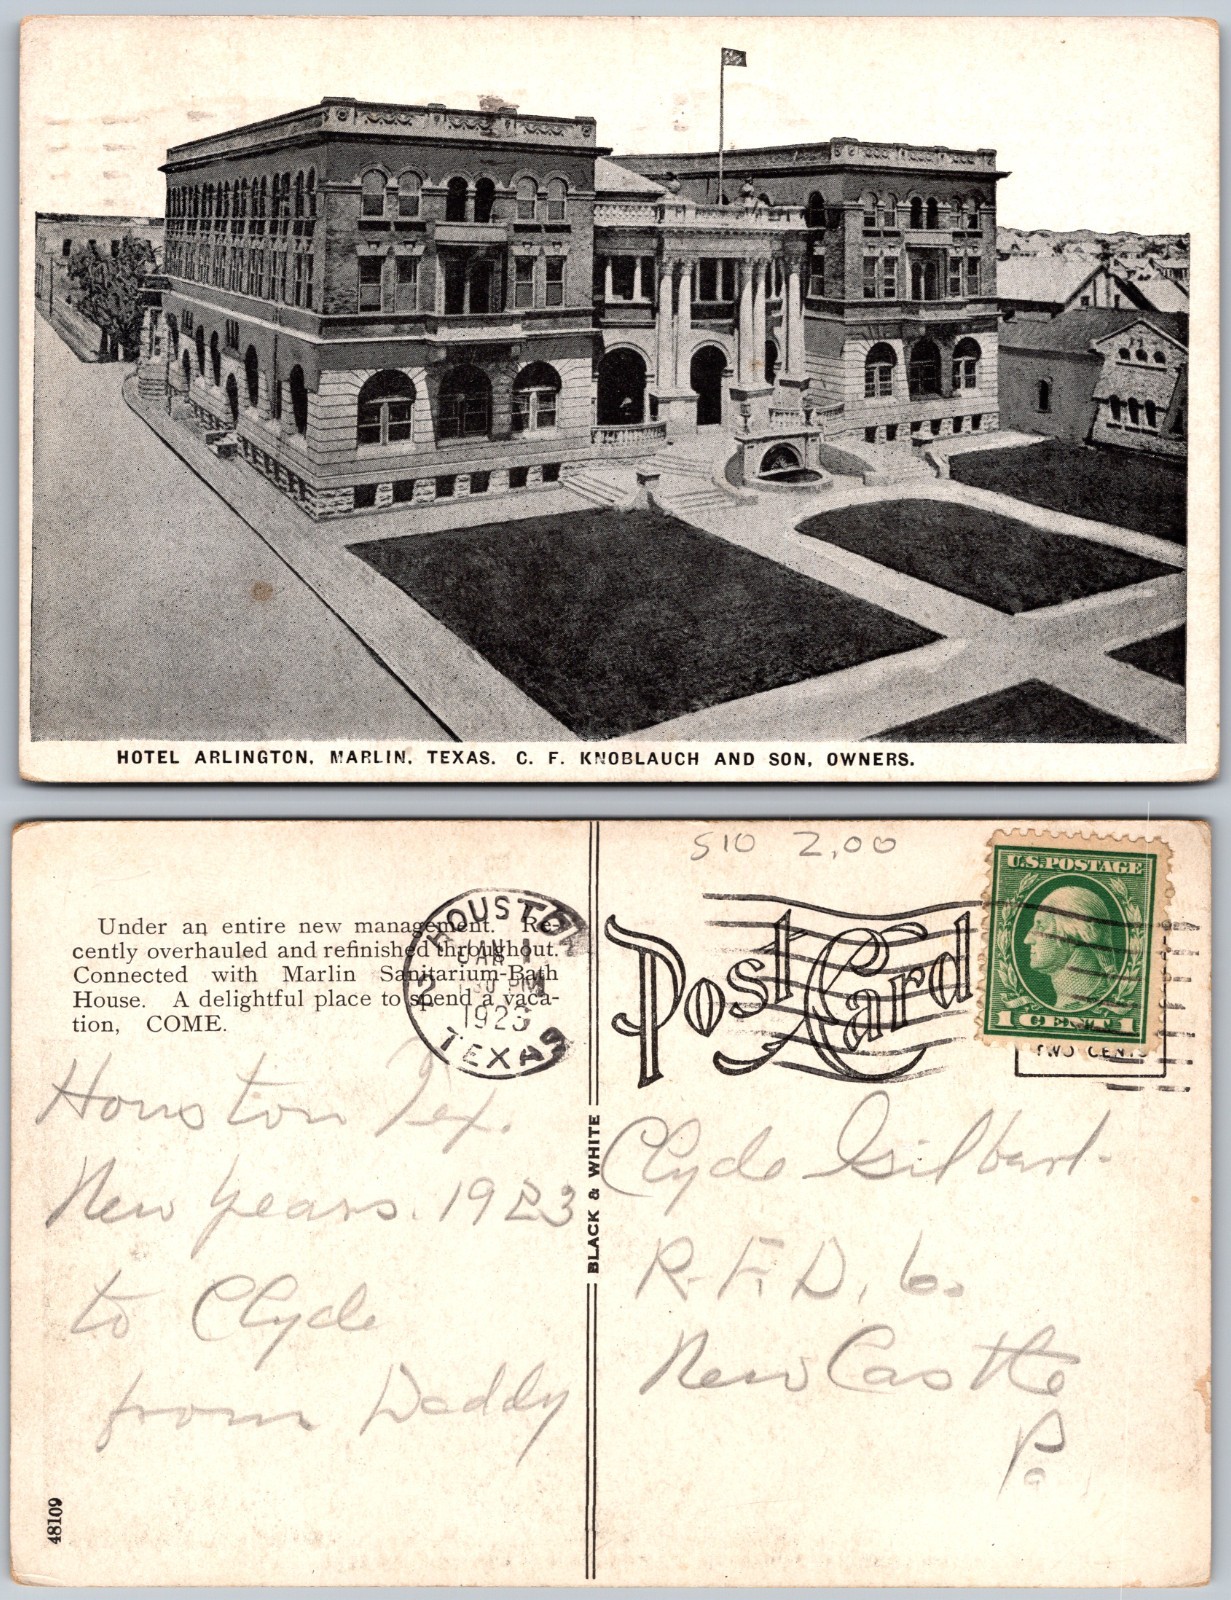 HOTEL ARLINGTON, MARLIN, TEXAS. C. F. KNOBLAUCH AND SON, OWNERS.
S10 2,00
Under an entire new management. Re-
cently overhauled and refinished throughout.
Connected with Marlin Sanitarium-Bath
House. A delightful place to spend a vaca-
tion, COME.
HOUSTON
JAN 1
1 30 PM
1923
TEXAS
2
Post Card
U.S. POSTAGE
1 CENT 1
TWO CENTS
Houston Tex.
New Years. 1923
to Clyde
from Daddy
BLACK & WHITE
Clyde Gilbert.
R.F.D. 6.
New Castle
Pa.
48109